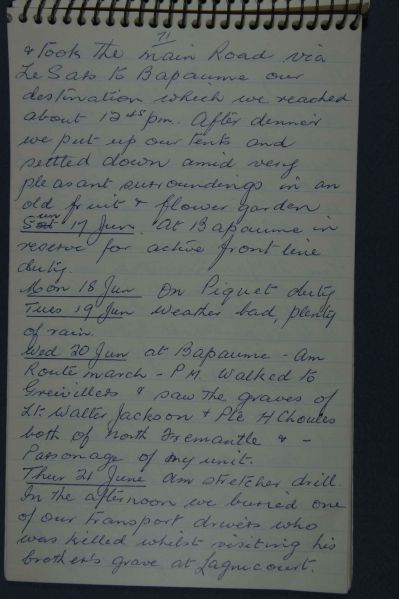 71
& took the main Road via
Le Sars to Bapaume our
destination which we reached
about 12 45 pm. After dinner
we put up our tents and
settled down amid very
pleasant surroundings in an
old fruit & flower garden
Sun 17 Jun. At Bapaume in
reserve for active front line
duty.
Mon 18 Jun On Piquet duty
Tues 19 Jun Weather bad, plenty
of rain.
Wed 20 Jun at Bapaume - am
Route march - P.M. Walked to
Greivillers & saw the graves of
Lt. Walter Jackson & Pte H Choules
both of North Fremantle & -
Parsonage of my unit.
Thur 21 June am stretcher drill.
In the afternoon we buried one
of our transport drivers who
was killed whilst visiting his
brother's grave at Lagnicourt.